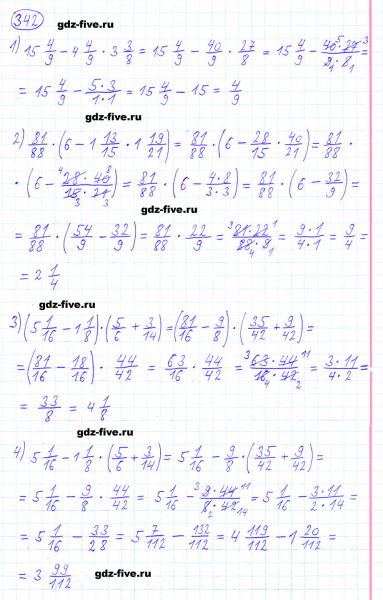 342
gdz-five.ru
1) 15 4/9 - 4 4/9 · 3 3/8 = 15 4/9 - 40/9 · 27/8 = 15 4/9 - 40 5 · 27 3/9 1 · 8 1 =
= 15 4/9 - 5·3/1·1 = 15 4/9 - 15 = 4/9
gdz-five.ru
2) 81/88 · (6 - 1 13/15 · 1 19/21) = 81/88 · (6 - 28/15 · 40/21) = 81/88 ·
· (6 - 4 28 · 40 8/15 3 · 21 3) = 81/88 · (6 - 4·8/3·3) = 81/88 · (6 - 32/9) =
gdz-five.ru
= 81/88 · (54/9 - 32/9) = 81/88 · 22/9 = 9 81·22 1/88 4 · 9 1 = 9·1/4·1 = 9/4 =
= 2 1/4
gdz-five.ru
3) (5 1/16 - 1 1/8) · (5/6 + 3/14) = (81/16 - 9/8) · (35/42 + 9/42) =
= (81/16 - 18/16) · 44/42 = 63/16 · 44/42 = 3 63·44 11/16 4 · 42 2 = 3·11/4·2 =
= 33/8 = 4 1/8
gdz-five.ru
4) 5 1/16 - 1 1/8 · (5/6 + 3/14) = 5 1/16 - 9/8 · (35/42 + 9/42) =
= 5 1/16 - 9/8 · 44/42 = 5 1/16 - 3 9·44 11/8 2 · 42 14 = 5 1/16 - 3·11/2·14 =
= 5 1/16 - 33/28 = 5 7/112 - 132/112 = 4 119/112 - 1 20/112 =
= 3 99/112
gdz-five.ru